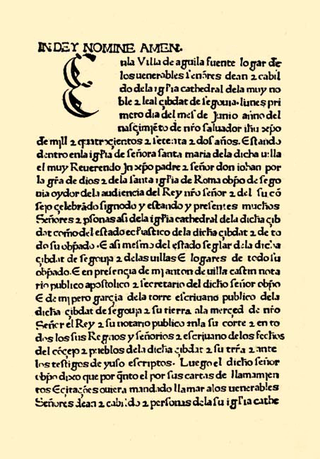 IN DEY NOMINE AMEN.
Enla Villa de aguila fuente logar de
los uenerables señores dean ⁊ cabil
do dela igl'ia cathedral dela muy no
ble ⁊ leal çibdat de segouia. lunes pri
mero dia del mes de Junio año del
nasçimiẽto de nr̃o saluador ihũ xp̃o
de mill ⁊ quatroçientos ⁊ setenta ⁊ dos años. Estando
dentro enla igl'ia de señora santa maria dela dicha uilla
el muy Reuerendo jn xp̃o padre ⁊ señor don iohan por
la gr̃a de dios ⁊ dela santa igl'ia de Roma obp̃o de sego
uia oydor dela audiencia del Rey nr̃o señor ⁊ del su cõ
sejo celebrãdo signodo y estando y presentes muchos
Señores ⁊ p̃sonas asi dela igl'ia cathedral dela dicha çib
dat como del estado ecl'esiastico dela dicha çibdat ⁊ de to
do su obp̃ado. E asi mesmo del estado seglar dela dicha
çibdat de segouia ⁊ delas uillas E logares de todo su
obp̃ado. E en presençia de mj anton de uilla castin nota
rio publico apostolico ⁊ secretario del dicho señor obp̃o
E de mj pero garçia dela torre escriuano publico dela
dicha çibdat de segouia ⁊ su tierra ala merçed de nr̃o
Señor el Rey ⁊ su notario publico enla su corte ⁊ en to
dos los sus Regnos y señorios ⁊ escriuano delos fechos
del cõçejo ⁊ pueblos dela dicha çibdat ⁊ su tr̃ra ⁊ ante
los testigos de yuso escriptos. Luego el dicho señor
obp̃o dixo que por q̃nto el por sus cartas de llamamien
tos E çitaçiões ouiera mandado llamar alos uenerables
Señores dean ⁊ cabildo ⁊ personas dela su igl'ia cathe